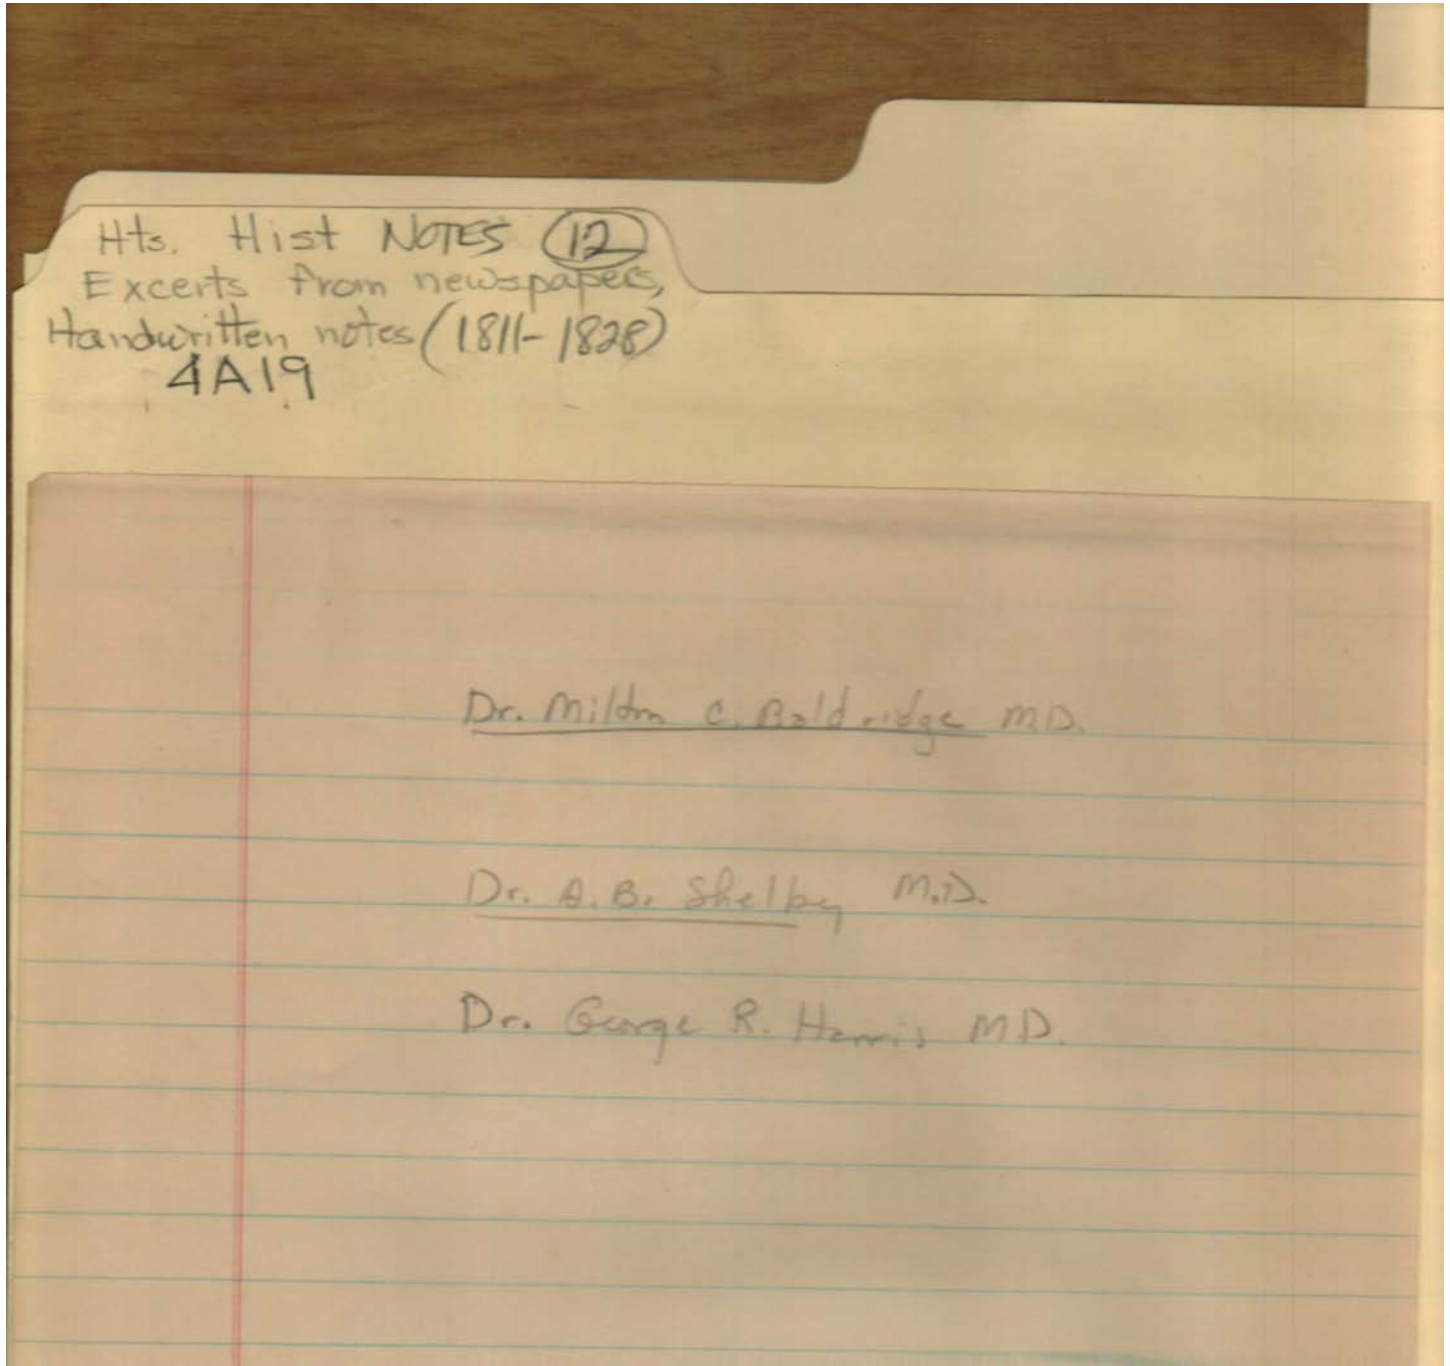 Hts. Hist NOTES 12
Excerts from newspapers,
Handwritten notes (1811-1828)
4A19
Dr. Milton C. Baldridge M.D.
Dr. A.B. Shelby M.D.
Dr. George R. Harris MD.